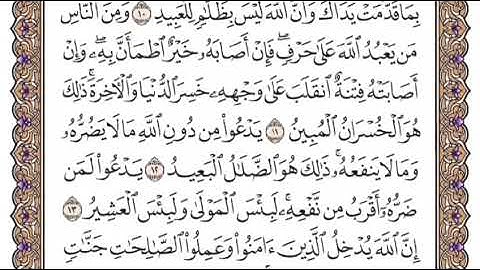 بِمَا قَدَّمَتْ يَدَاكَ وَأَنَّ ٱللَّهَ لَيْسَ بِظَلَّٰمٖ لِّلۡعَبِيدِ ١٠ وَمِنَ ٱلنَّاسِ
مَن يَعۡبُدُ ٱللَّهَ عَلَىٰ حَرۡفٖۖ فَإِنۡ أَصَابَهُۥ خَيۡرٌ ٱطۡمَأَنَّ بِهِۦۖ وَإِنۡ
أَصَابَتۡهُ فِتۡنَةٌ ٱنقَلَبَ عَلَىٰ وَجۡهِهِۦ خَسِرَ ٱلدُّنۡيَا وَٱلۡأٓخِرَةَۚ ذَٰلِكَ
هُوَ ٱلۡخُسۡرَانُ ٱلۡمُبِينُ ١١ يَدۡعُواْ مِن دُونِ ٱللَّهِ مَا لَا يَضُرُّهُۥ
وَمَا لَا يَنفَعُهُۥۚ ذَٰلِكَ هُوَ ٱلضَّلَٰلُ ٱلۡبَعِيدُ ١٢ يَدۡعُواْ لَمَن
ضَرُّهُۥٓ أَقۡرَبُ مِن نَّفۡعِهِۦۚ لَبِئۡسَ ٱلۡمَوۡلَىٰ وَلَبِئۡسَ ٱلۡعَشِيرُ ١٣
إِنَّ ٱللَّهَ يُدۡخِلُ ٱلَّذِينَ ءَامَنُواْ وَعَمِلُواْ ٱلصَّٰلِحَٰتِ جَنَّٰتٖ